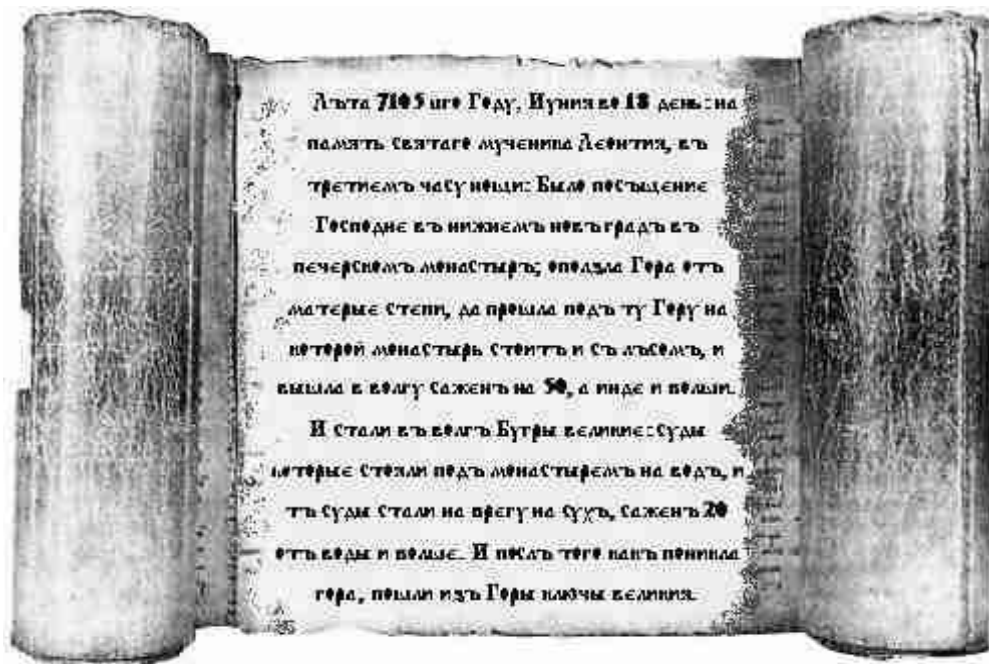 Лѣта 7105 иго Году, Иуния во 18 день: на
память святаго мученика Леонтия, въ
третиемъ часу нощи: Было посѣщение
Господне въ нижнемъ новѣградѣ въ
печерскомъ монастырѣ; оползла Гора отъ
матерые степи, да прошла подъ ту Гору на
которой монастырь стоитъ и съ лѣсомъ, и
вышла в волгу саженъ на 50, а инде и болши.
И стали въ волгѣ Бугры великие: суды
которые стояли подъ монастыремъ на водѣ, и
тѣ суды стали на брегу на сухѣ, саженъ 20
отъ воды и больше. И послѣ того какъ поникла
гора, пошли изъ Горы ключы великия.